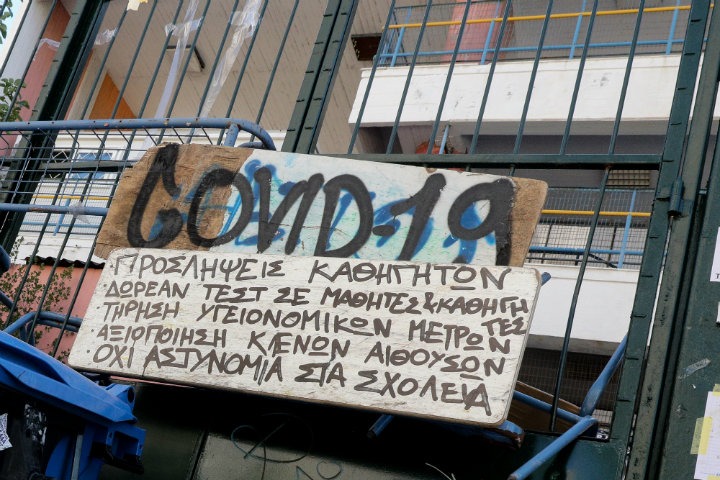 COVID-19
ΠΡΟΣΛΗΨΕΙΣ ΚΑΘΗΓΗΤΩΝ
ΔΩΡΕΑΝ ΤΕΣΤ ΣΕ ΜΑΘΗΤΕΣ & ΚΑΘΗΓΗ
ΤΕΣ
ΤΗΡΗΣΗ ΥΓΕΙΟΝΟΜΙΚΩΝ ΜΕΤΡΩΝ
ΑΞΙΟΠΟΙΗΣΗ ΚΕΝΩΝ ΑΙΘΟΥΣΩΝ
ΟΧΙ ΑΣΤΥΝΟΜΙΑ ΣΤΑ ΣΧΟΛΕΙΑ